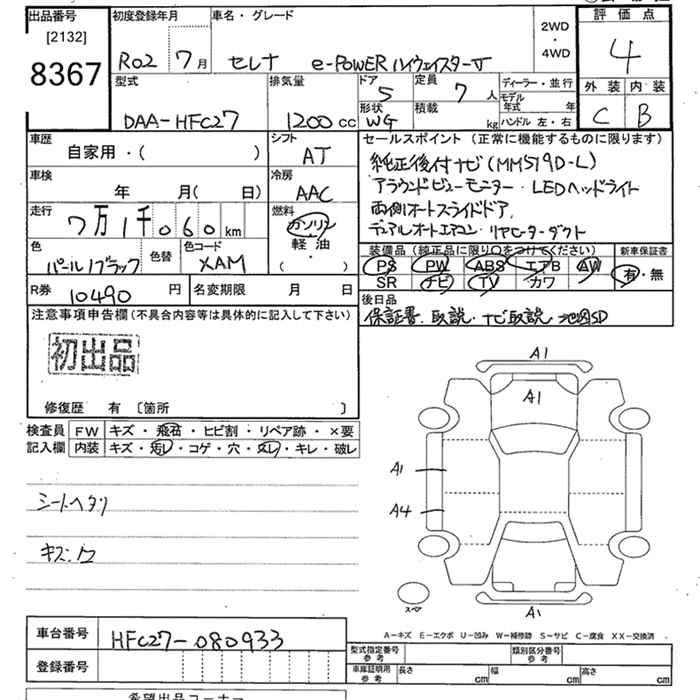 出品番号
[2132]
8367
初度登録年月
R02 7月
車名・グレード
セレナ e-POWER ハイウェイスターV
2WD
・
4WD
評価点
4
外装 内装
C B
型式
DAA-HFC27
排気量
1200cc
ドア
5
形状
WG
定員
7人
積載
kg
ディーラー・並行
モデル年式 年
ハンドル 左・右
車歴
自家用・( )
シフト
AT
車検
年 月( 日)
冷房
AAC
走行
7万1千060km
燃料
ガソリン
軽油
( )
色
パール/ブラック
色替
色コード
XAM
R券
10490円
名変期限 月 日
セールスポイント(正常に機能するものに限ります)
純正後付ナビ(MM519D-L)
アラウンドビューモニター・LEDヘッドライト
両側オートスライドドア,
デュアルオートエアコン・リヤヒーターダクト
装備品(純正品に限り○をつけてください)
PS PW ABS エアB AW
SR ナビ TV カワ
新車保証書
有・無
後日品
保証書、取説・ナビ取説 地図SD
注意事項申告欄(不具合内容等は具体的に記入して下さい)
初出品
修復歴 有 〔箇所 〕
検査員
記入欄
FW キズ・飛石・ヒビ割・リペア跡・×要
内装 キズ・汚レ・コゲ・穴・スレ・キレ・破レ
シートヘタリ
A1
A1
A1
A4
A1
スペア
A-キズ E-エクボ U-凹み W-補修跡 S-サビ C-腐食 XX-交換済
車台番号
HFC27-080933
登録番号
型式指定番号
参考
類別区分番号
参考
車庫証明用
参考
長さ cm
幅 cm
高さ cm
希望出品コーナー